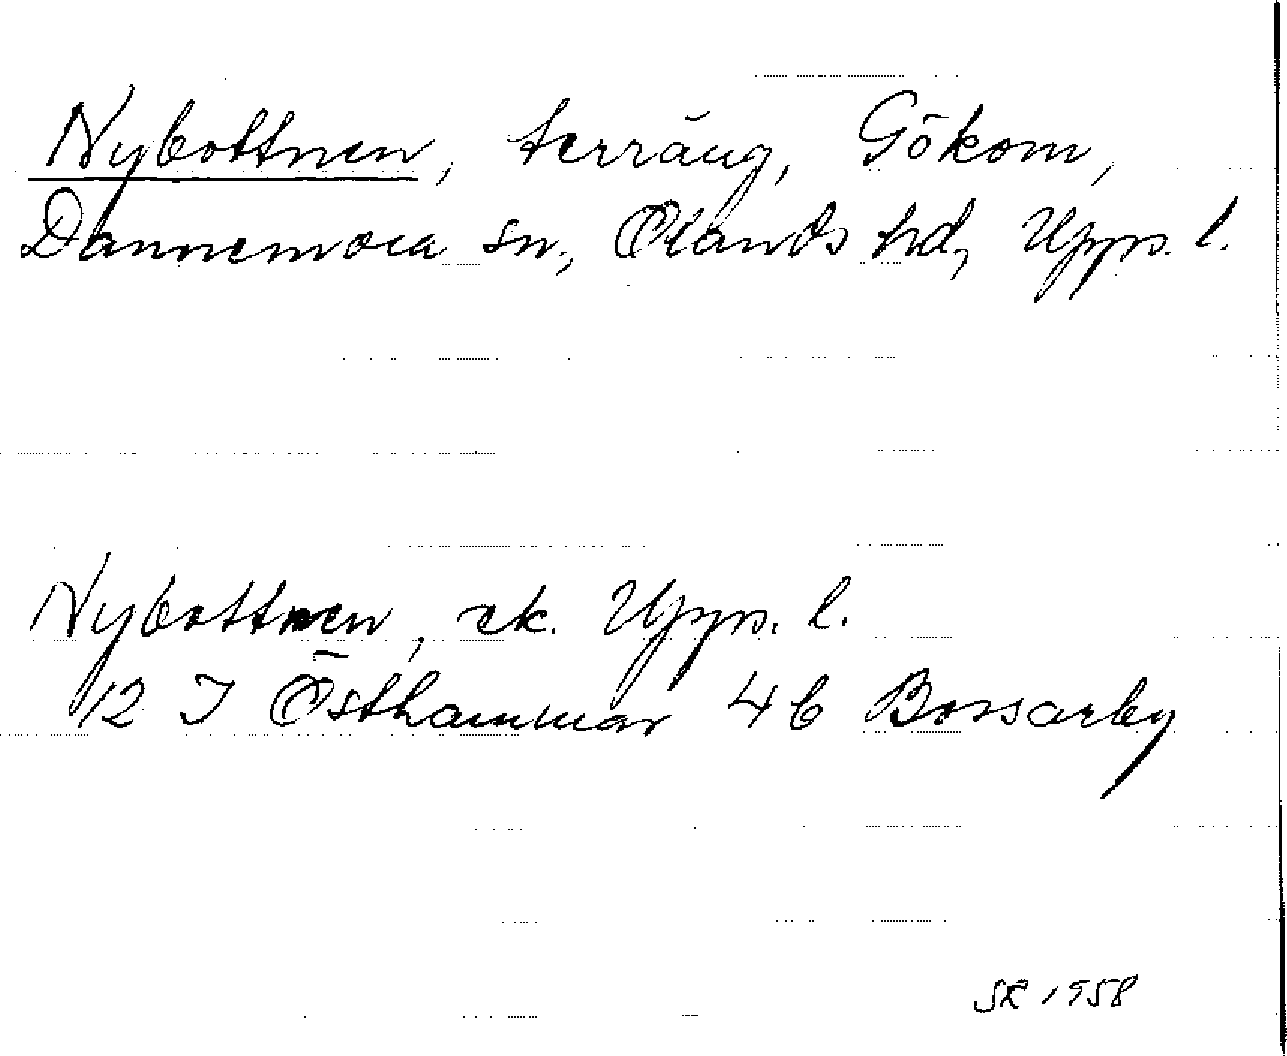 Nybottnen, terräng, Gökom,
Dannemora sn., Olands hd, Upps. l.
Nybottnen, ek. Upps. l.
12 I Östhammar 4 b Bossarby
SR 1958